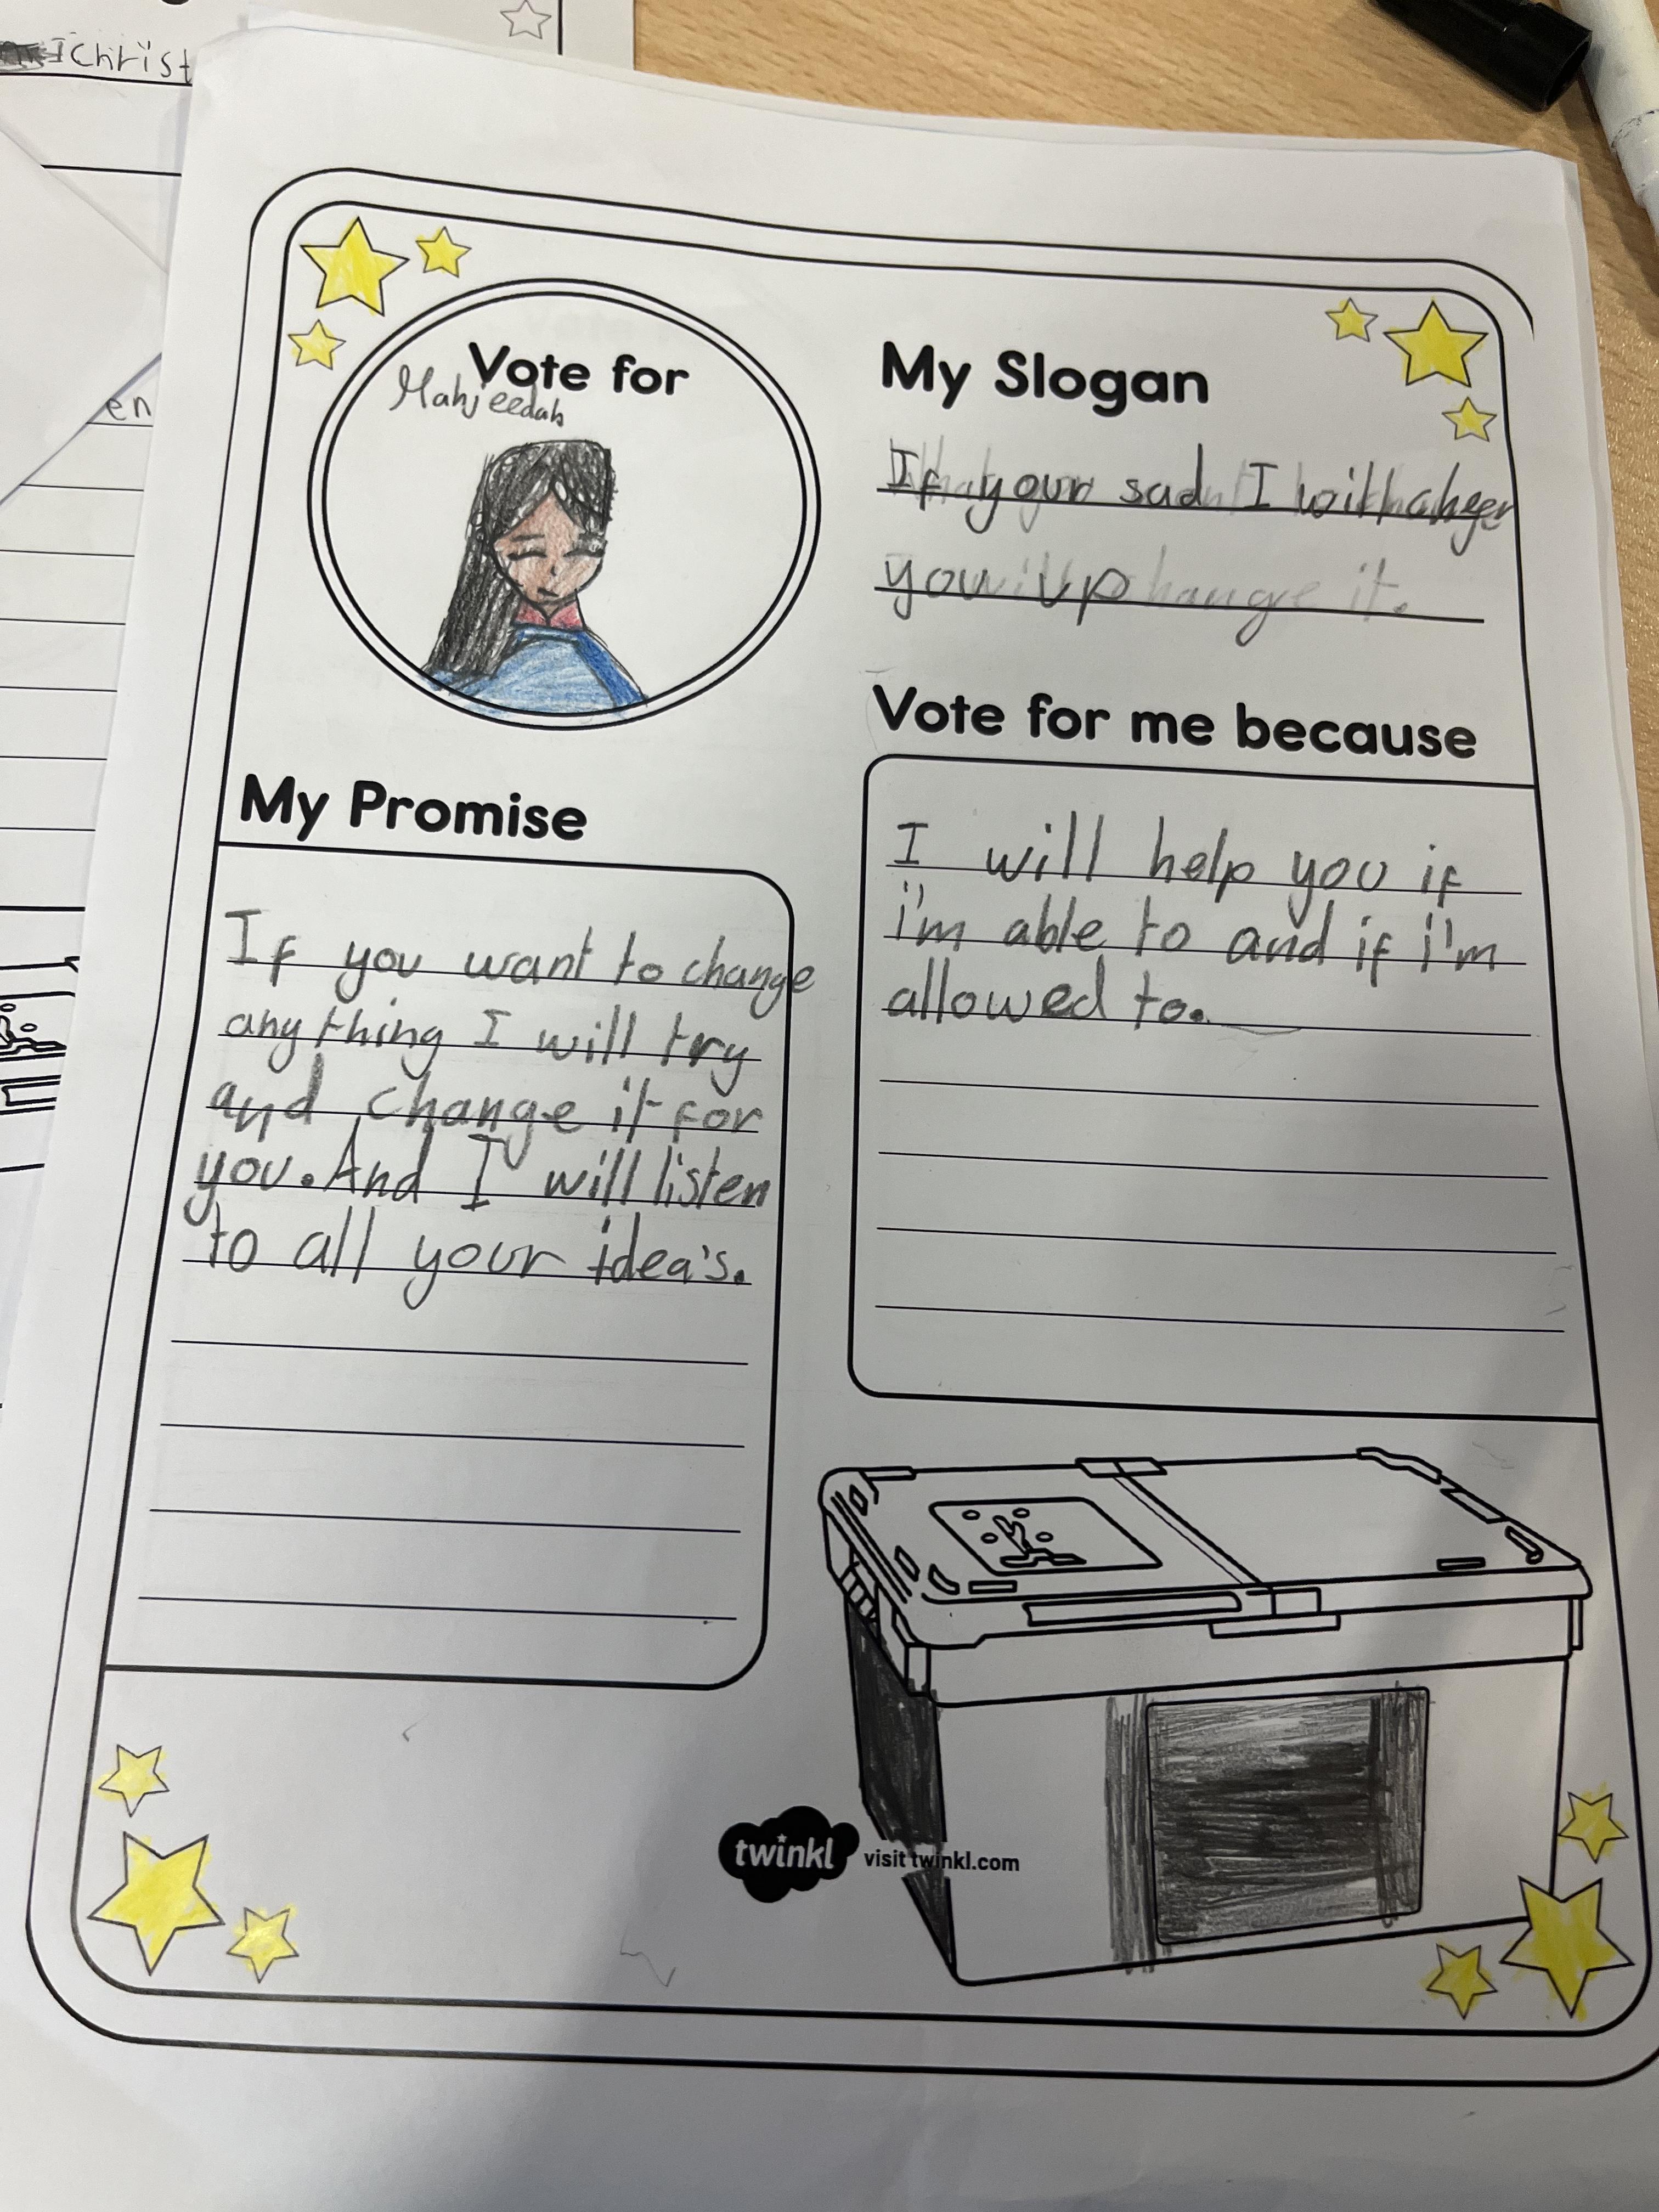 Christ
en
Vote for
Mahjeedah
My Slogan
If your sad I will cheer
you up
change it.
Vote for me because
I will help you if
i'm able to and if i'm
allowed to.
My Promise
If you want to change
anything I will try
and change it for
you. And I will listen
to all your idea's.
twinkl
visit twinkl.com